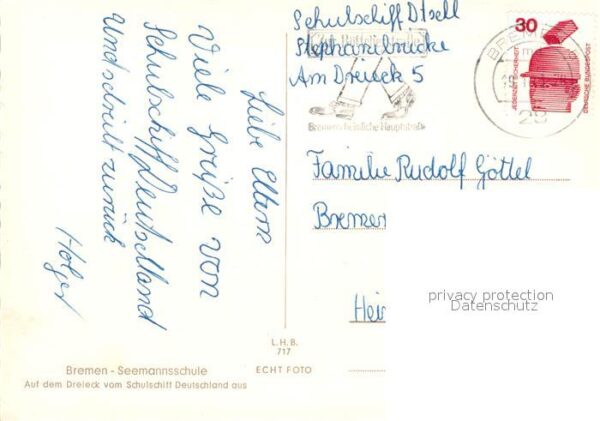 Liebe Eltern
Viele Grüße von
Schulschiff Deutschland
Und schreibt zurück
Holger
Schulschiff Dtsell
Stephaniebrücke
Am Dreieck 5
Familie Rudolf Göttel
Bremer
Hei
30
JEDERZEIT SICHERHEIT
DEUTSCHE BUNDESPOST
BREME
Bremens festliche Hauptstraße
privacy protection
Datenschutz
L.H.B.
717
Bremen - Seemannsschule
ECHT FOTO
Auf dem Dreieck vom Schulschiff Deutschland aus